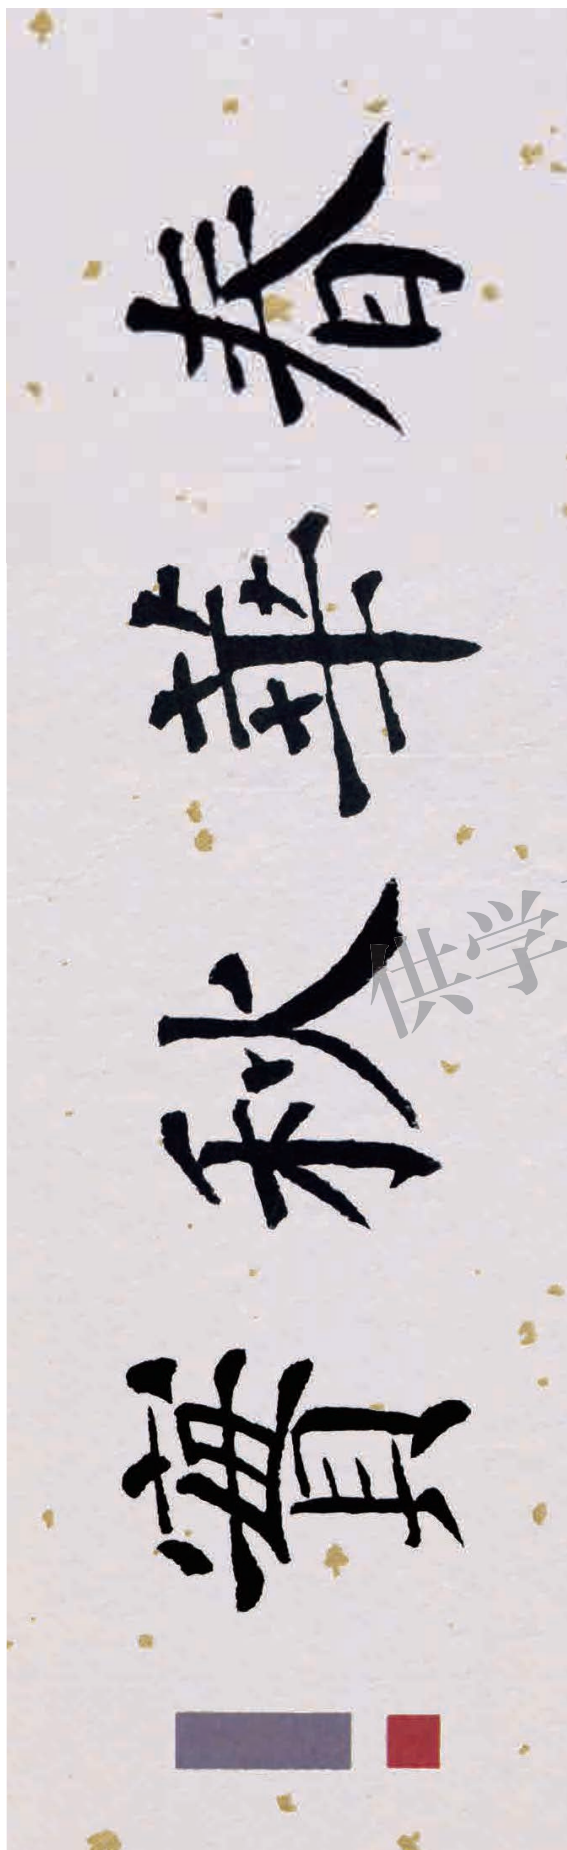 春華秋實
供学